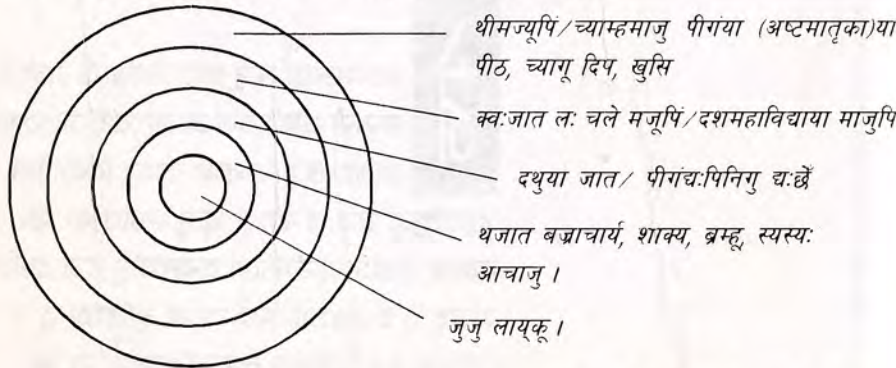 थीमज्यूपिं/च्याम्हमाजु पीगंया (अष्टमातृका)या
पीठ, च्यागू दिप, खुसि
क्वःजात लः चले मजूपिं/दशमहाविद्याया माजुपिं
दथुया जात/ पीगंद्यःपिनिगु द्यःछेँ
थजात बज्राचार्य, शाक्य, ब्रम्हू, स्यस्यः
आचाजु ।
जुजु लाय्‌कू ।